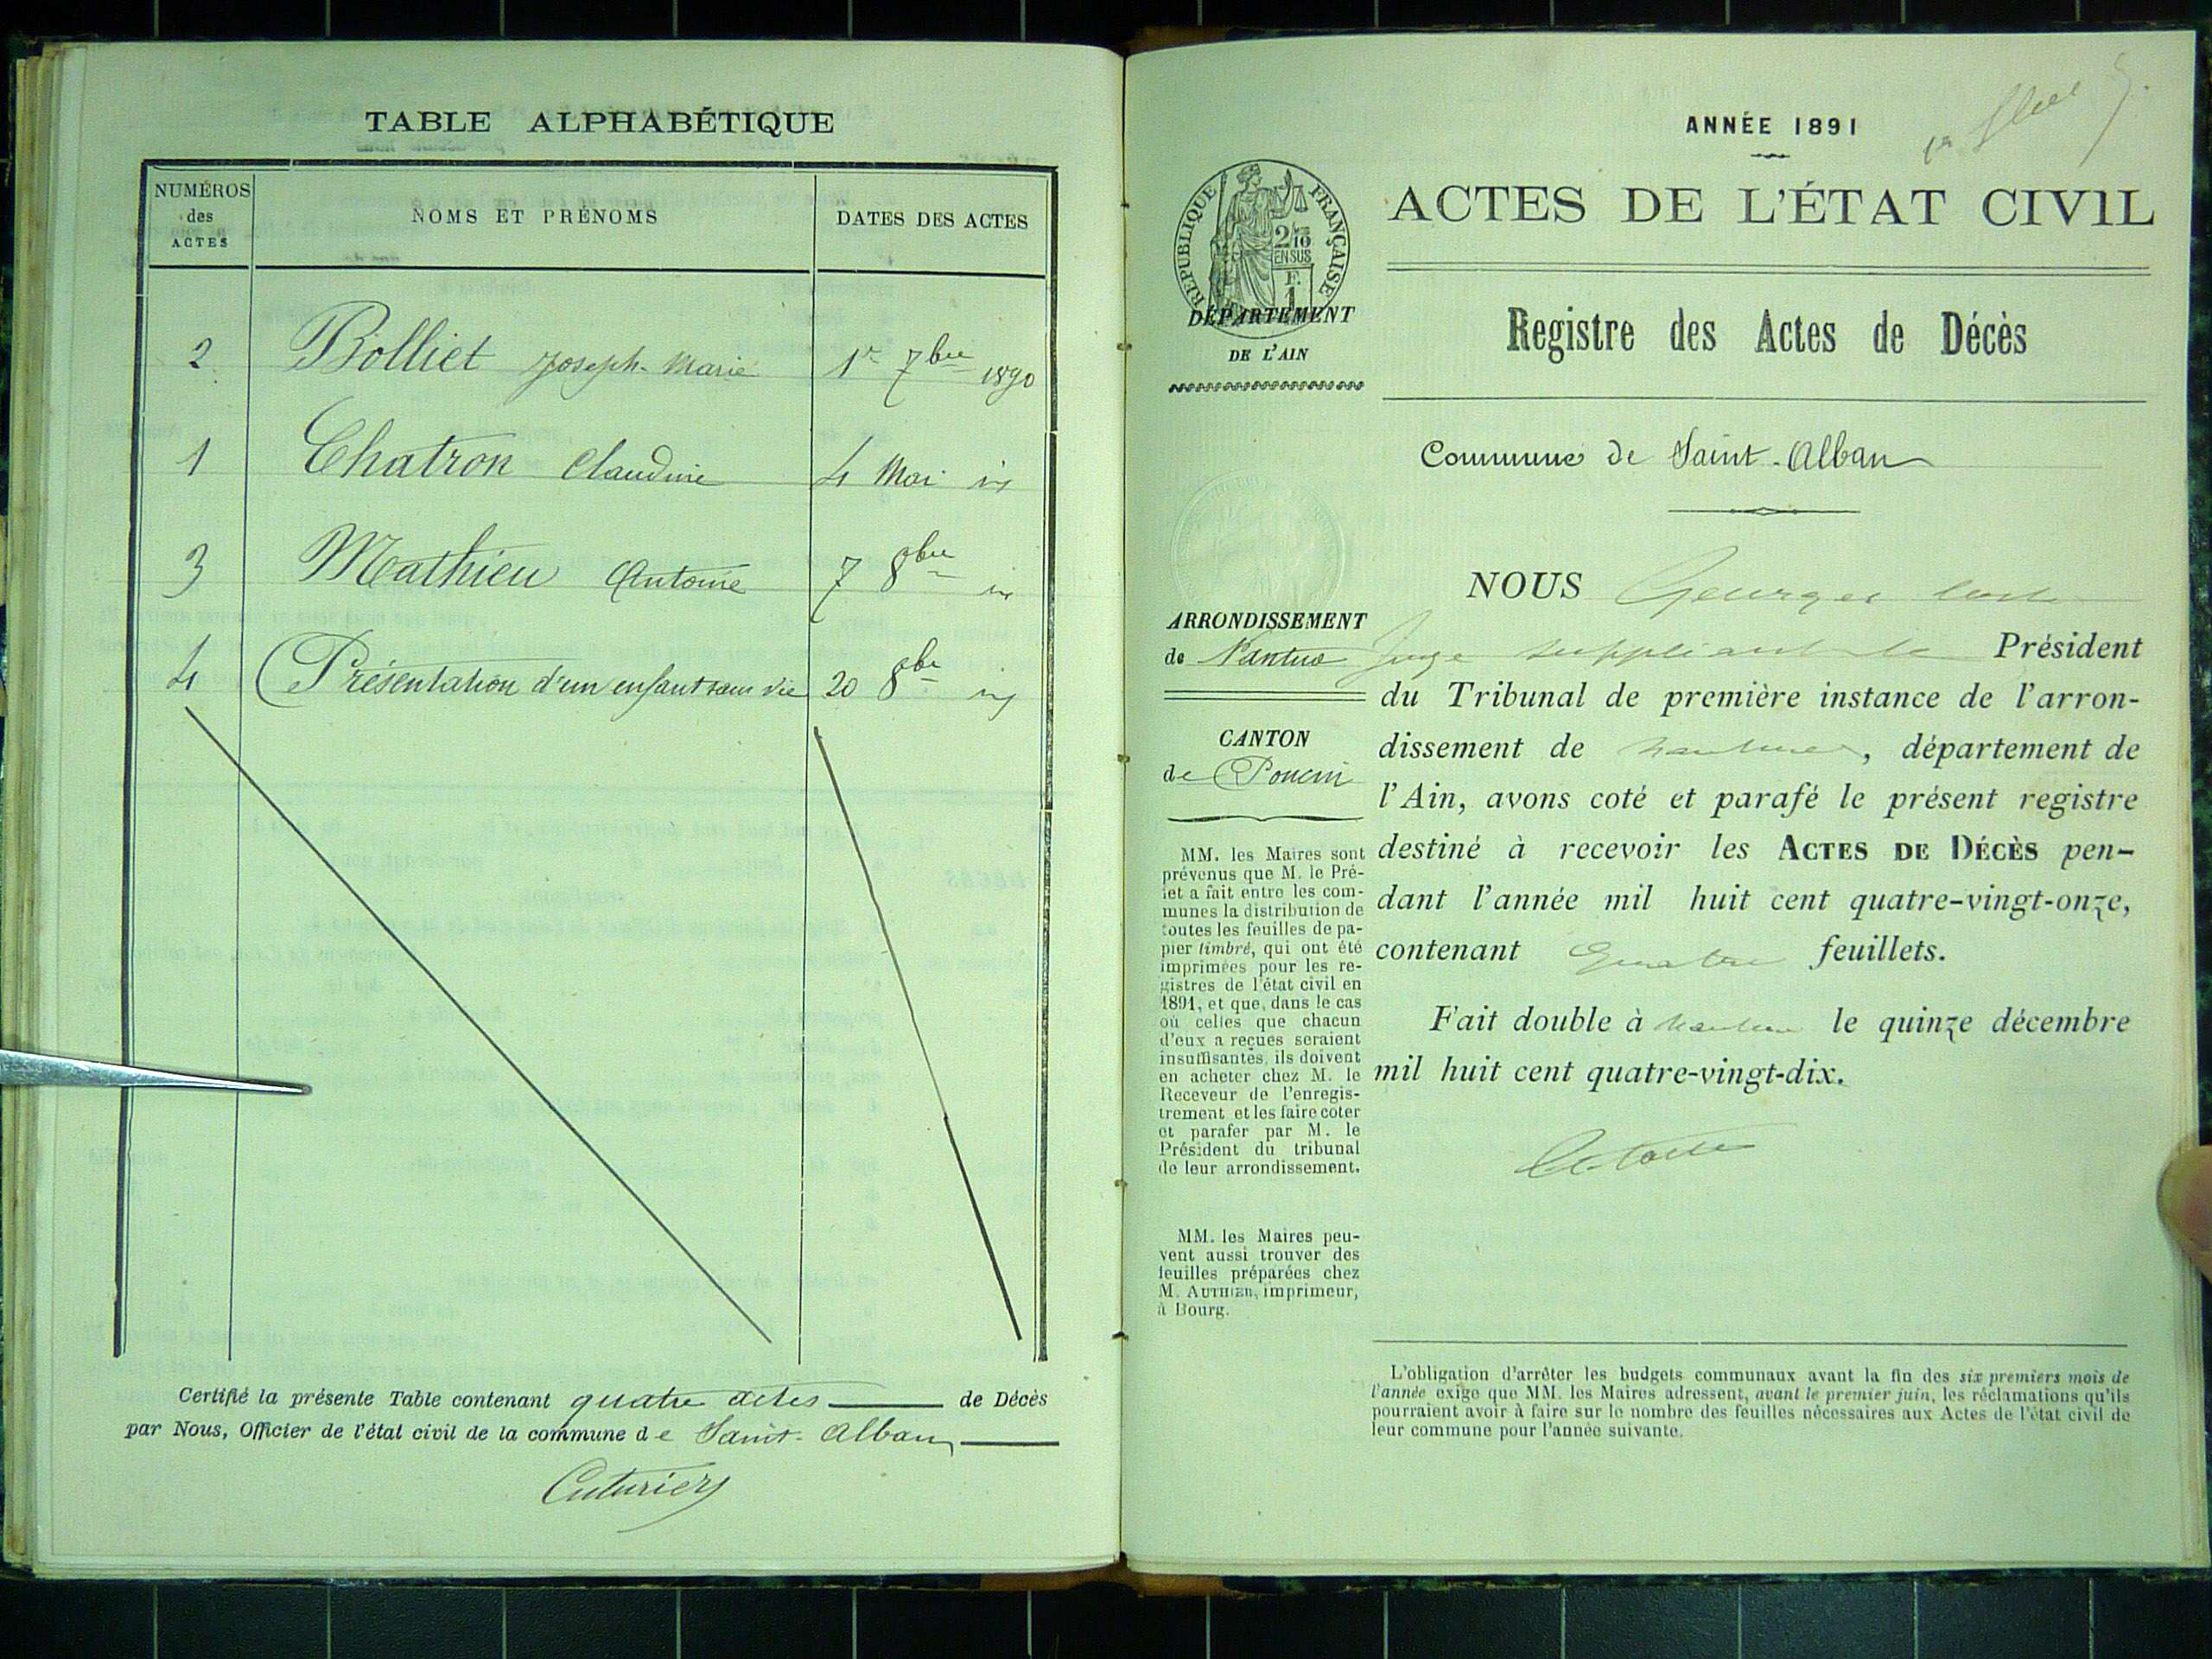 TABLE ALPHABÉTIQUE
NUMÉROS des ACTES NOMS ET PRÉNOMS DATES DES ACTES
2 Bolliet Joseph-Marie 1er 7bre 1890
1 Chatron Claudine 4 Mai
3 Mathieu Antoine 7 8bre
4 Présentation d'un enfant sans vie 20 8bre
Certifié la présente Table contenant quatre actes de Décès
par Nous, Officier de l'état civil de la commune de Saint-Alban
Cuturier
ANNÉE 1891
ACTES DE L'ÉTAT CIVIL
RÉPUBLIQUE FRANÇAISE
2/10
EN SUS
F.
1
DÉPARTEMENT
DE L'AIN
Registre des Actes de Décès
Commune de Saint-Alban
ARRONDISSEMENT
de Nantua
CANTON
de Poncin
MM. les Maires sont
prévenus que M. le Pré-
fet a fait entre les com-
munes la distribution de
toutes les feuilles de pa-
pier timbré, qui ont été
imprimées pour les re-
gistres de l'état civil en
1891, et que, dans le cas
où celles que chacun
d'eux a reçues seraient
insuffisantes, ils doivent
en acheter chez M. le
Receveur de l'enregis-
trement et les faire coter
et parafer par M. le
Président du tribunal
de leur arrondissement.
MM. les Maires peu-
vent aussi trouver des
feuilles préparées chez
M. AUTHIER, imprimeur,
à Bourg.
NOUS Georges
Juge suppléant le Président
du Tribunal de première instance de l'arron-
dissement de Nantua, département de
l'Ain, avons coté et parafé le présent registre
destiné à recevoir les ACTES DE DÉCÈS pen-
dant l'année mil huit cent quatre-vingt-onze,
contenant Quatre feuillets.
Fait double à Nantua le quinze décembre
mil huit cent quatre-vingt-dix.
L'obligation d'arrêter les budgets communaux avant la fin des six premiers mois de
l'année exige que MM. les Maires adressent, avant le premier juin, les réclamations qu'ils
pourraient avoir à faire sur le nombre des feuilles nécessaires aux Actes de l'état civil de
leur commune pour l'année suivante.